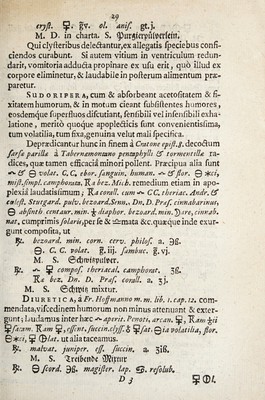 29
cryst. ol. anis. gt. j.
M. D. in charta. S. Purgierpülverlein.
Qui clysteribus delectantur, ex allegatis speciebus confi-
ciendos curabunt. Si autem vitium in ventriculum redun-
darit, vomitoria adducta propinare ex usu erit, quò illud ex
corpore eliminetur, & laudabile in posterum alimentum præ-
paretur.
SUDORIFERA, cum & absorbeant acetositatem & fi-
xitatem humorum, & in motum cieant subsistentes humores,
eosdemque superfluos discutiant, sensibili vel insensibili exha-
latione, meritò quoque apoplecticis sunt convenientissima,
tum volatilia, tum fixa, genuina velut mali specifica.
Deprædicantur hunc in finem à Craton. epist. decoctum
sarsa parilla à Tabernamontano pentaphylli & tormentilla ra-
dices, quæ tamen efficaciâ minori pollent. Præcipua alia sunt
C. C. ebor. sanguin. human. flor.
mist. simpl. camphorata, Ra bez. Mich. remedium etiam in apo-
plexiâ laudatissimum; Ra corall. C. C. theriac. Andr.
culest. Sturgard. pulv. bezoard. Senn. Dn. D. Pras. cinnabarinus,
absinth. centaur. min. diaphor. bezoard. min. cinnab.
nat. cumprimis solaris, per se & mata &c. quæque inde exur-
gunt composita, ut
℞. bezoard. min. corn. cerv. philos. a. ℈ß.
C. C. volat. g. iij. sambuc. g. vj.
M. S. Schwitzpulver.
℞. compos. theriacal. camphorat. ʒß.
Ra bez. Dn. D. Pras. corall. a. ʒj.
M. S. Schwitz mixtur.
DIURETICA, à Fr. Hoffmanno m. m. lib. 1. cap. 12. com-
mendata, viscedinem humorum non minus attenuant & exter-
gunt; laudamus inter hæc aperit. Penoti, arcan. Ram
Ram essent. succin. sat. volatilia, flor.
lat. ut alia taceamus.
℞. malvat. juniper. ess. succin. a. ʒiß.
M. S. Treibende Mixtur
℞. scord. ℈ß. magister. lap. resolub.
D 3